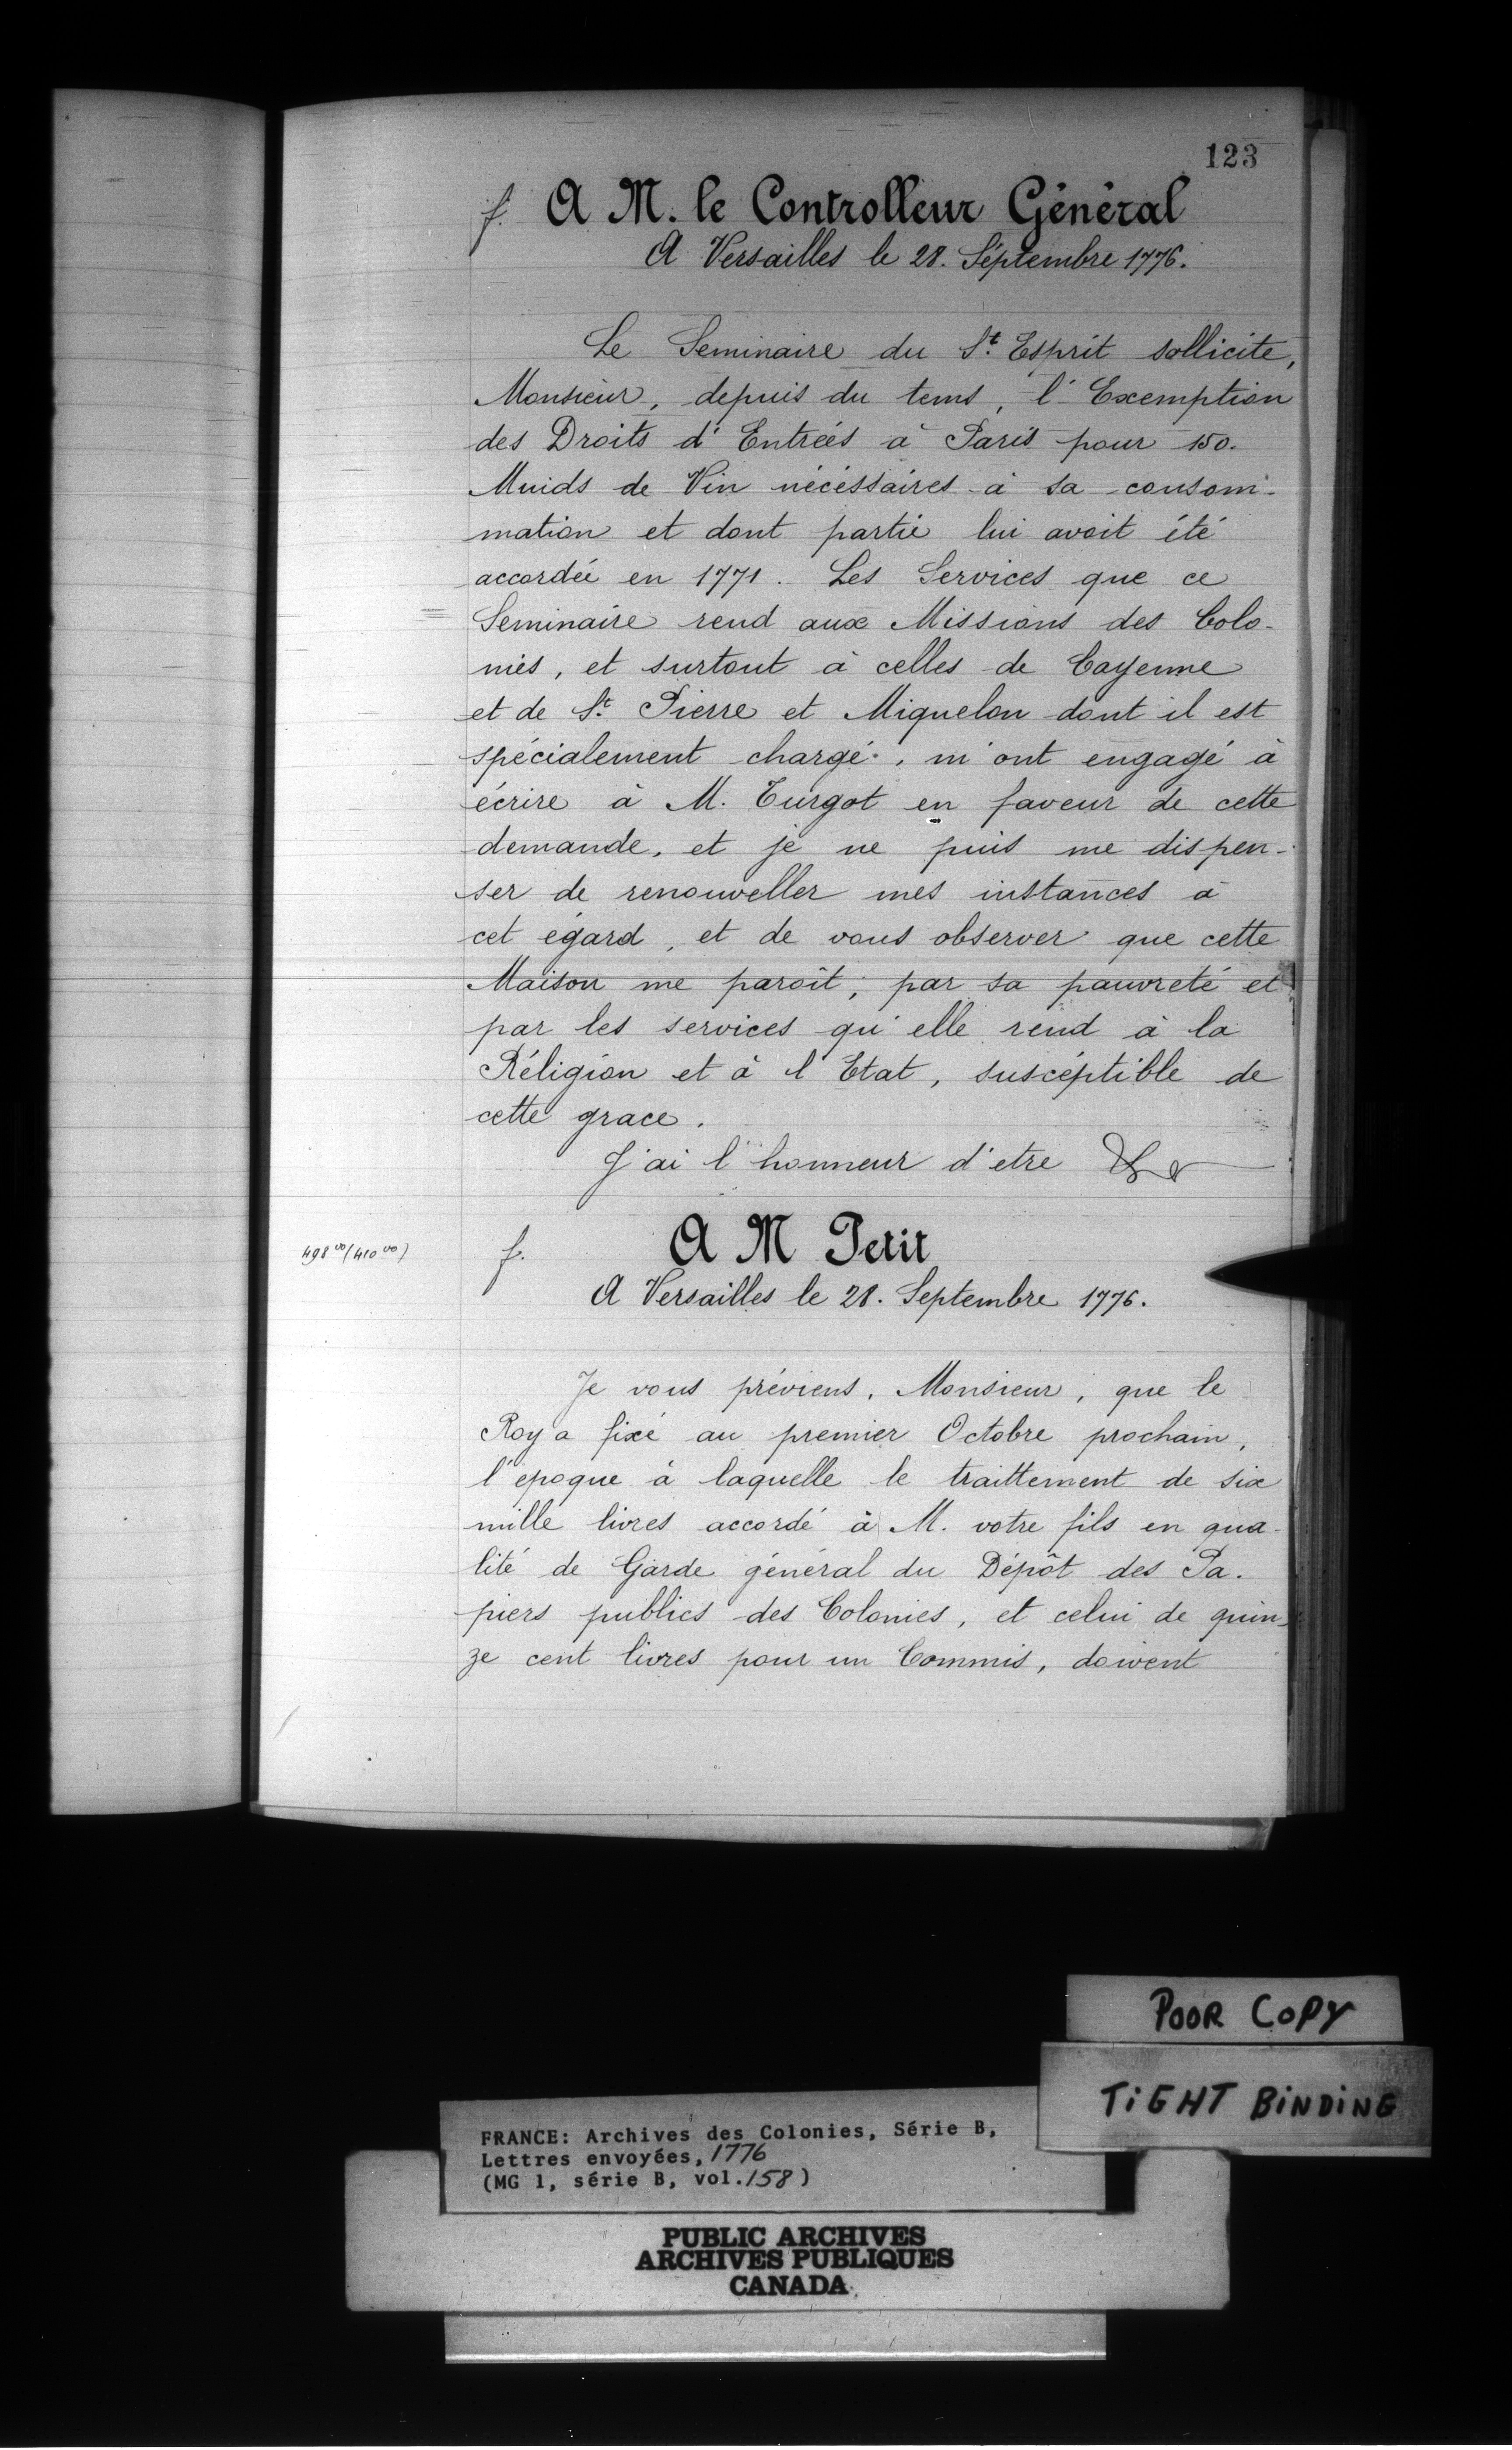 123
f. A M. le Controlleur Général
A Versailles le 28. Séptembre 1776.
Le Seminaire du St. Esprit sollicite,
Monsieur, depuis du tems, l'Exemption
des Droits d'Entreés à Paris pour 150.
Muids de Vin nécéssaires à sa consom-
mation et dont partie lui avoit été
accordée en 1771. Les Services que ce
Seminaire rend aux Missions des Colo-
nies, et surtout à celles de Cayenne
et de St. Pierre et Miquelon dont il est
spécialement chargé, m'ont engagé à
écrire à M. Turgot en faveur de cette
demande, et je ne puis me dispen-
ser de renouveller mes instances à
cet égard, et de vous observer que cette
Maison me paroît, par sa pauvreté et
par les services qu'elle rend à la
Réligion et à l'Etat, suscéptible de
cette grace.
J'ai l'honneur d'etre &a
498 vo (410 vo)
f. A M Petit
A Versailles le 28. Septembre 1776.
Je vous préviens, Monsieur, que le
Roy a fixé au premier Octobre prochain,
l'epoque à laquelle le traittement de six
mille livres accordé à M. votre fils en qua-
lité de Garde général du Dépôt des Pa-
piers publics des Colonies, et celui de quin-
ze cent livres pour un Commis, doivent
POOR COPY
TiGHT BiNDiNG
FRANCE: Archives des Colonies, Série B,
Lettres envoyées, 1776
(MG 1, série B, vol. 158)
PUBLIC ARCHIVES
ARCHIVES PUBLIQUES
CANADA